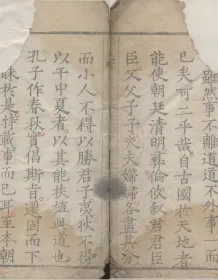 雖然事不離道道不外事而
已矣可二乎哉自古國於天地者
能使朝廷清明彝倫攸叙君君臣
臣父父子子夫夫婦婦各盡其分
而小人不得以勝君子夷狄不得
以干中夏者以其能扶植典道也
孔子作春秋實倡斯旨遷固而下
昧於是特載事而已耳至本朝